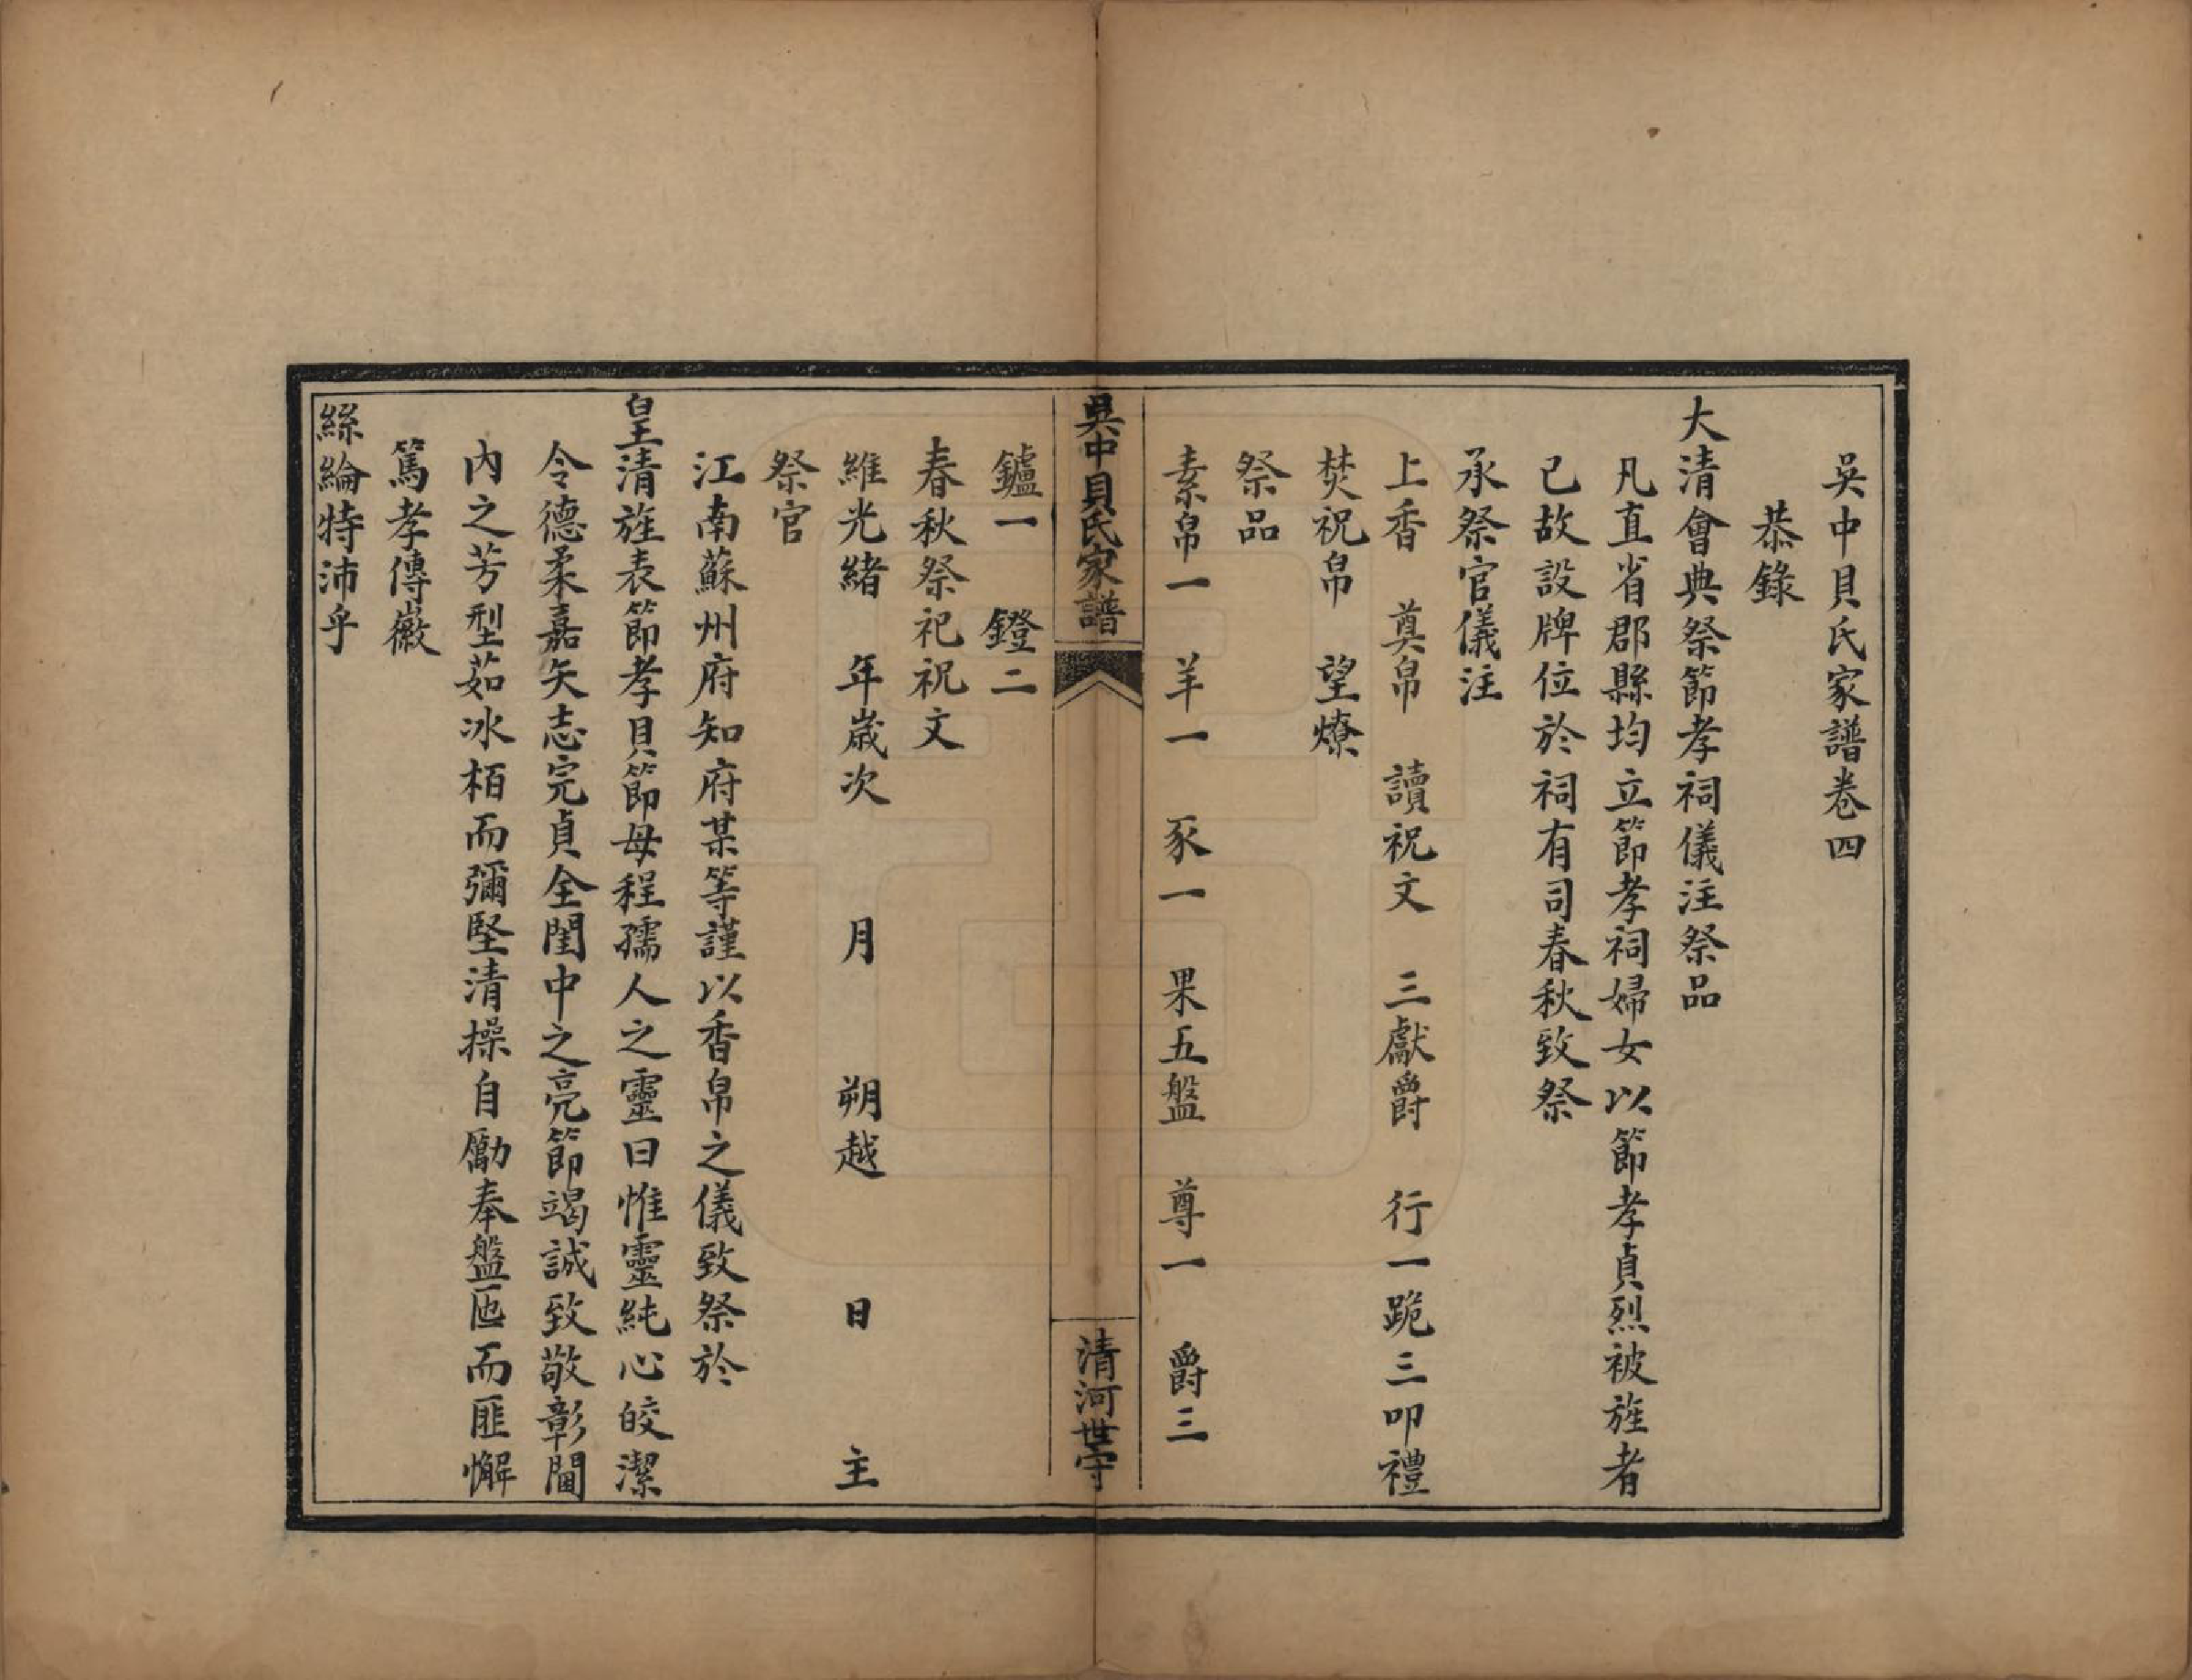 吳中貝氏家譜卷四
恭錄
大清會典祭節孝祠儀注祭品
凡直省郡縣均立節孝祠婦女以節孝貞烈被旌者
已故設牌位於祠有司春秋致祭
承祭官儀注
上香 奠帛 讀祝文 三獻爵 行一跪三叩禮
焚祝帛 望燎
祭品
素帛一 羊一 豕一 果五盤 尊一 爵三
吳中貝氏家譜
清河世守
鑪一 鐙二
春秋祭祀祝文
維光緒 年歲次 月 朔越 日 主
祭官
江南蘇州府知府某等謹以香帛之儀致祭於
皇清旌表節孝貝節母程孺人之靈曰惟靈純心皎潔
令德柔嘉矢志完貞全閨中之亮節竭誠致敬彰閫
內之芳型茹冰栢而彌堅清操自勵奉盤匜而匪懈
篤孝傳徽
絲綸特沛乎